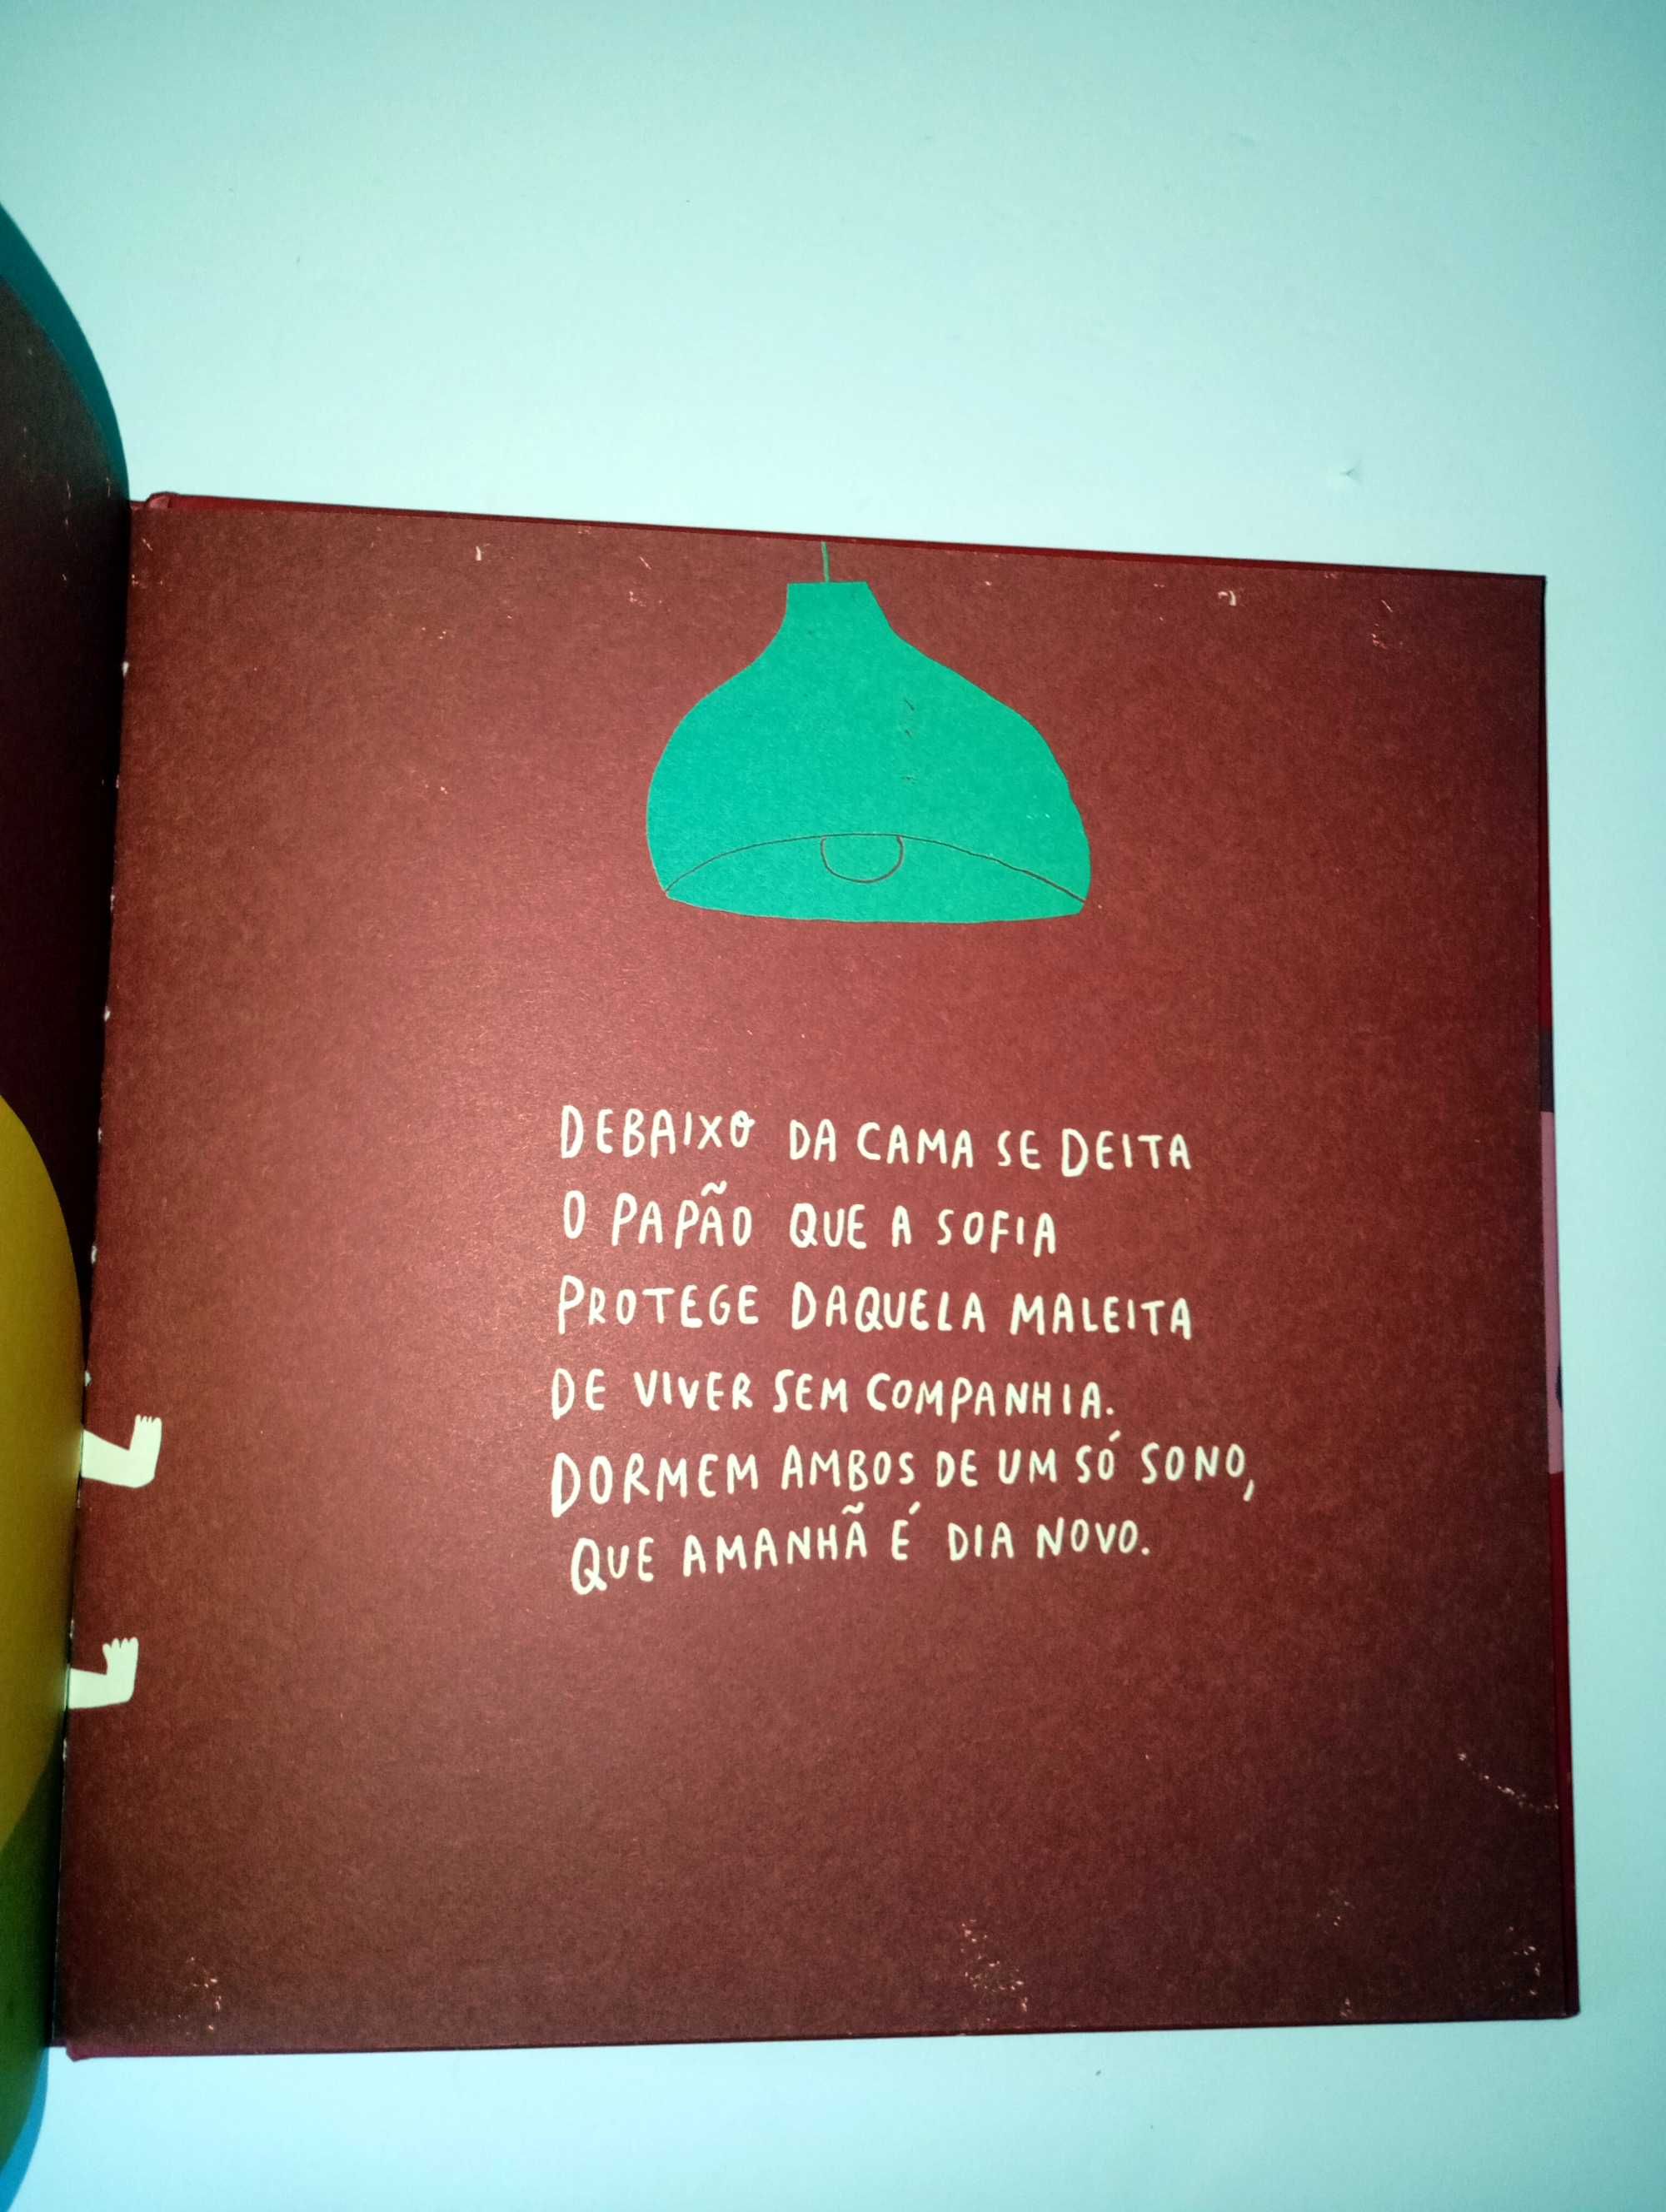 DEBAIXO DA CAMA SE DEITA
O PAPÃO QUE A SOFIA
PROTEGE DAQUELA MALEITA
DE VIVER SEM COMPANHIA.
DORMEM AMBOS DE UM SÓ SONO,
QUE AMANHÃ É DIA NOVO.